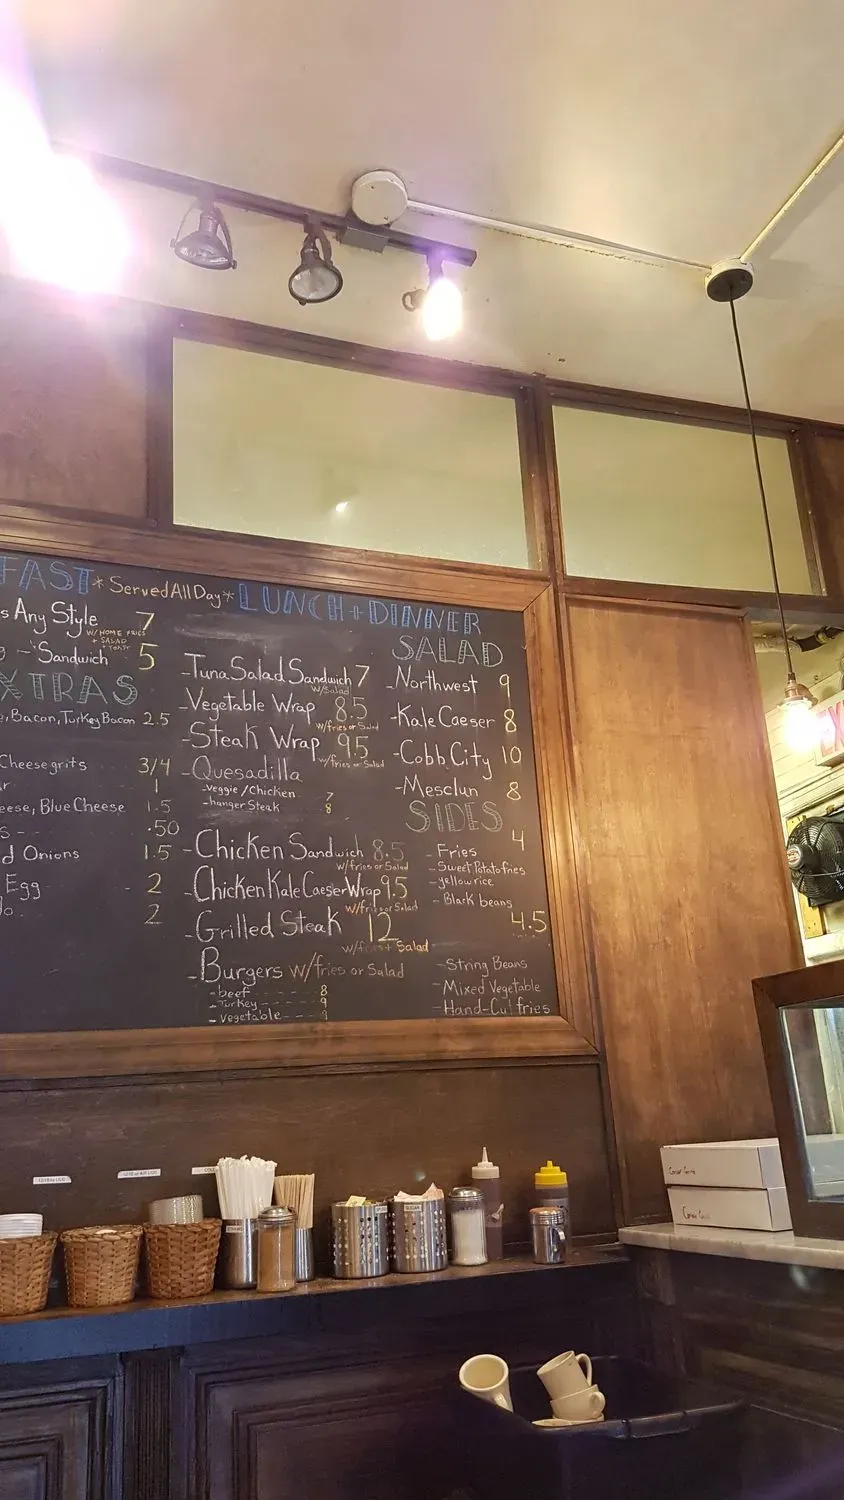 FAST *Served All Day*
s Any Style 7
W/HOME FRIES
+ SALAD
+ TOAST
g - Sandwich 5
XTRAS
, Bacon, Turkey Bacon 2.5
Cheesegrits 3/4
r 1
eese, Blue Cheese 1.5
s - .50
d Onions 1.5
Egg - 2
do. 2
LUNCH + DINNER
- Tuna Salad Sandwich 7
w/Salad
- Vegetable Wrap 8.5
w/fries or Salad
- Steak Wrap 9.5
w/fries or Salad
- Quesadilla
- veggie / Chicken 7
- hanger Steak 8
- Chicken Sandwich 8.5
w/fries or Salad
- Chicken Kale Caeser Wrap 9.5
w/fries or Salad
- Grilled Steak 12
w/fries + Salad
- Burgers w/fries or Salad
- beef 8
- Turkey 9
- vegetable
SALAD
- Northwest 9
- Kale Caeser 8
- Cobb City 10
- Mesclun 8
SIDES
4
- Fries
- Sweet Potato fries
- yellow rice
- Black beans
4.5
- String Beans
- Mixed Vegetable
- Hand-Cut fries
EX